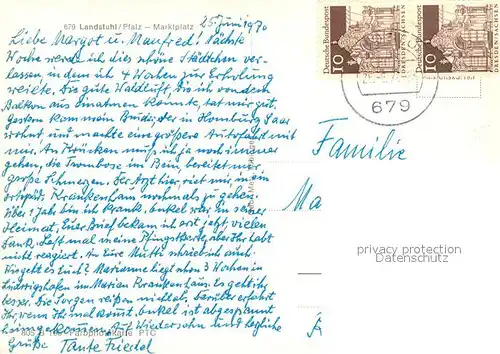 679 Landstuhl/Pfalz – Marktplatz
25. Juni 1970
Liebe Margot u. Manfred! Nächste
Woche werde ich dies schöne Städtchen ver-
lassen, in dem ich 4 Wochen zur Erholung
weilte. Die gute Waldluft, die ich von dem
Balkon aus einatmen konnte, tat mir gut.
Gestern kam mein Brüdi, der in Homburg Saar
wohnt und machte eine größere Autofahrt mit
mir. An Krücken muß ich ja noch immer
gehen, die Trombose im Bein, bereitet mir
große Schmerzen. Der Arzt hier riet mir in ein
ortopäd. Krankenhaus nochmals zu gehen.
Über 1 Jahr bin ich krank. Onkel war in seiner
Heimat. Euer Brief bekam ich erst jetzt, vielen
Dank. Auf meine Pfingstkarte, aber Ihr habt
nicht reagiert. An Eure Mutti schrieb ich auch.
Wie geht es Euch? Marianne liegt schon 3 Wochen in
Ludwigshafen im Marien Krankenhaus. Es geht ihr
besser. Die Sorgen reißen nicht ab, darüber erfahrt
Ihr, wenn Ihr kommt. Onkel ist abgespannt
heimgekommen. Auf Wiedersehn und herzliche
Grüße Tante Friedel
Farbphotokarte
Deutsche Bundespost
10
Deutsche Bundespost
10
679
Familie
Ma
privacy protection
Datenschutz